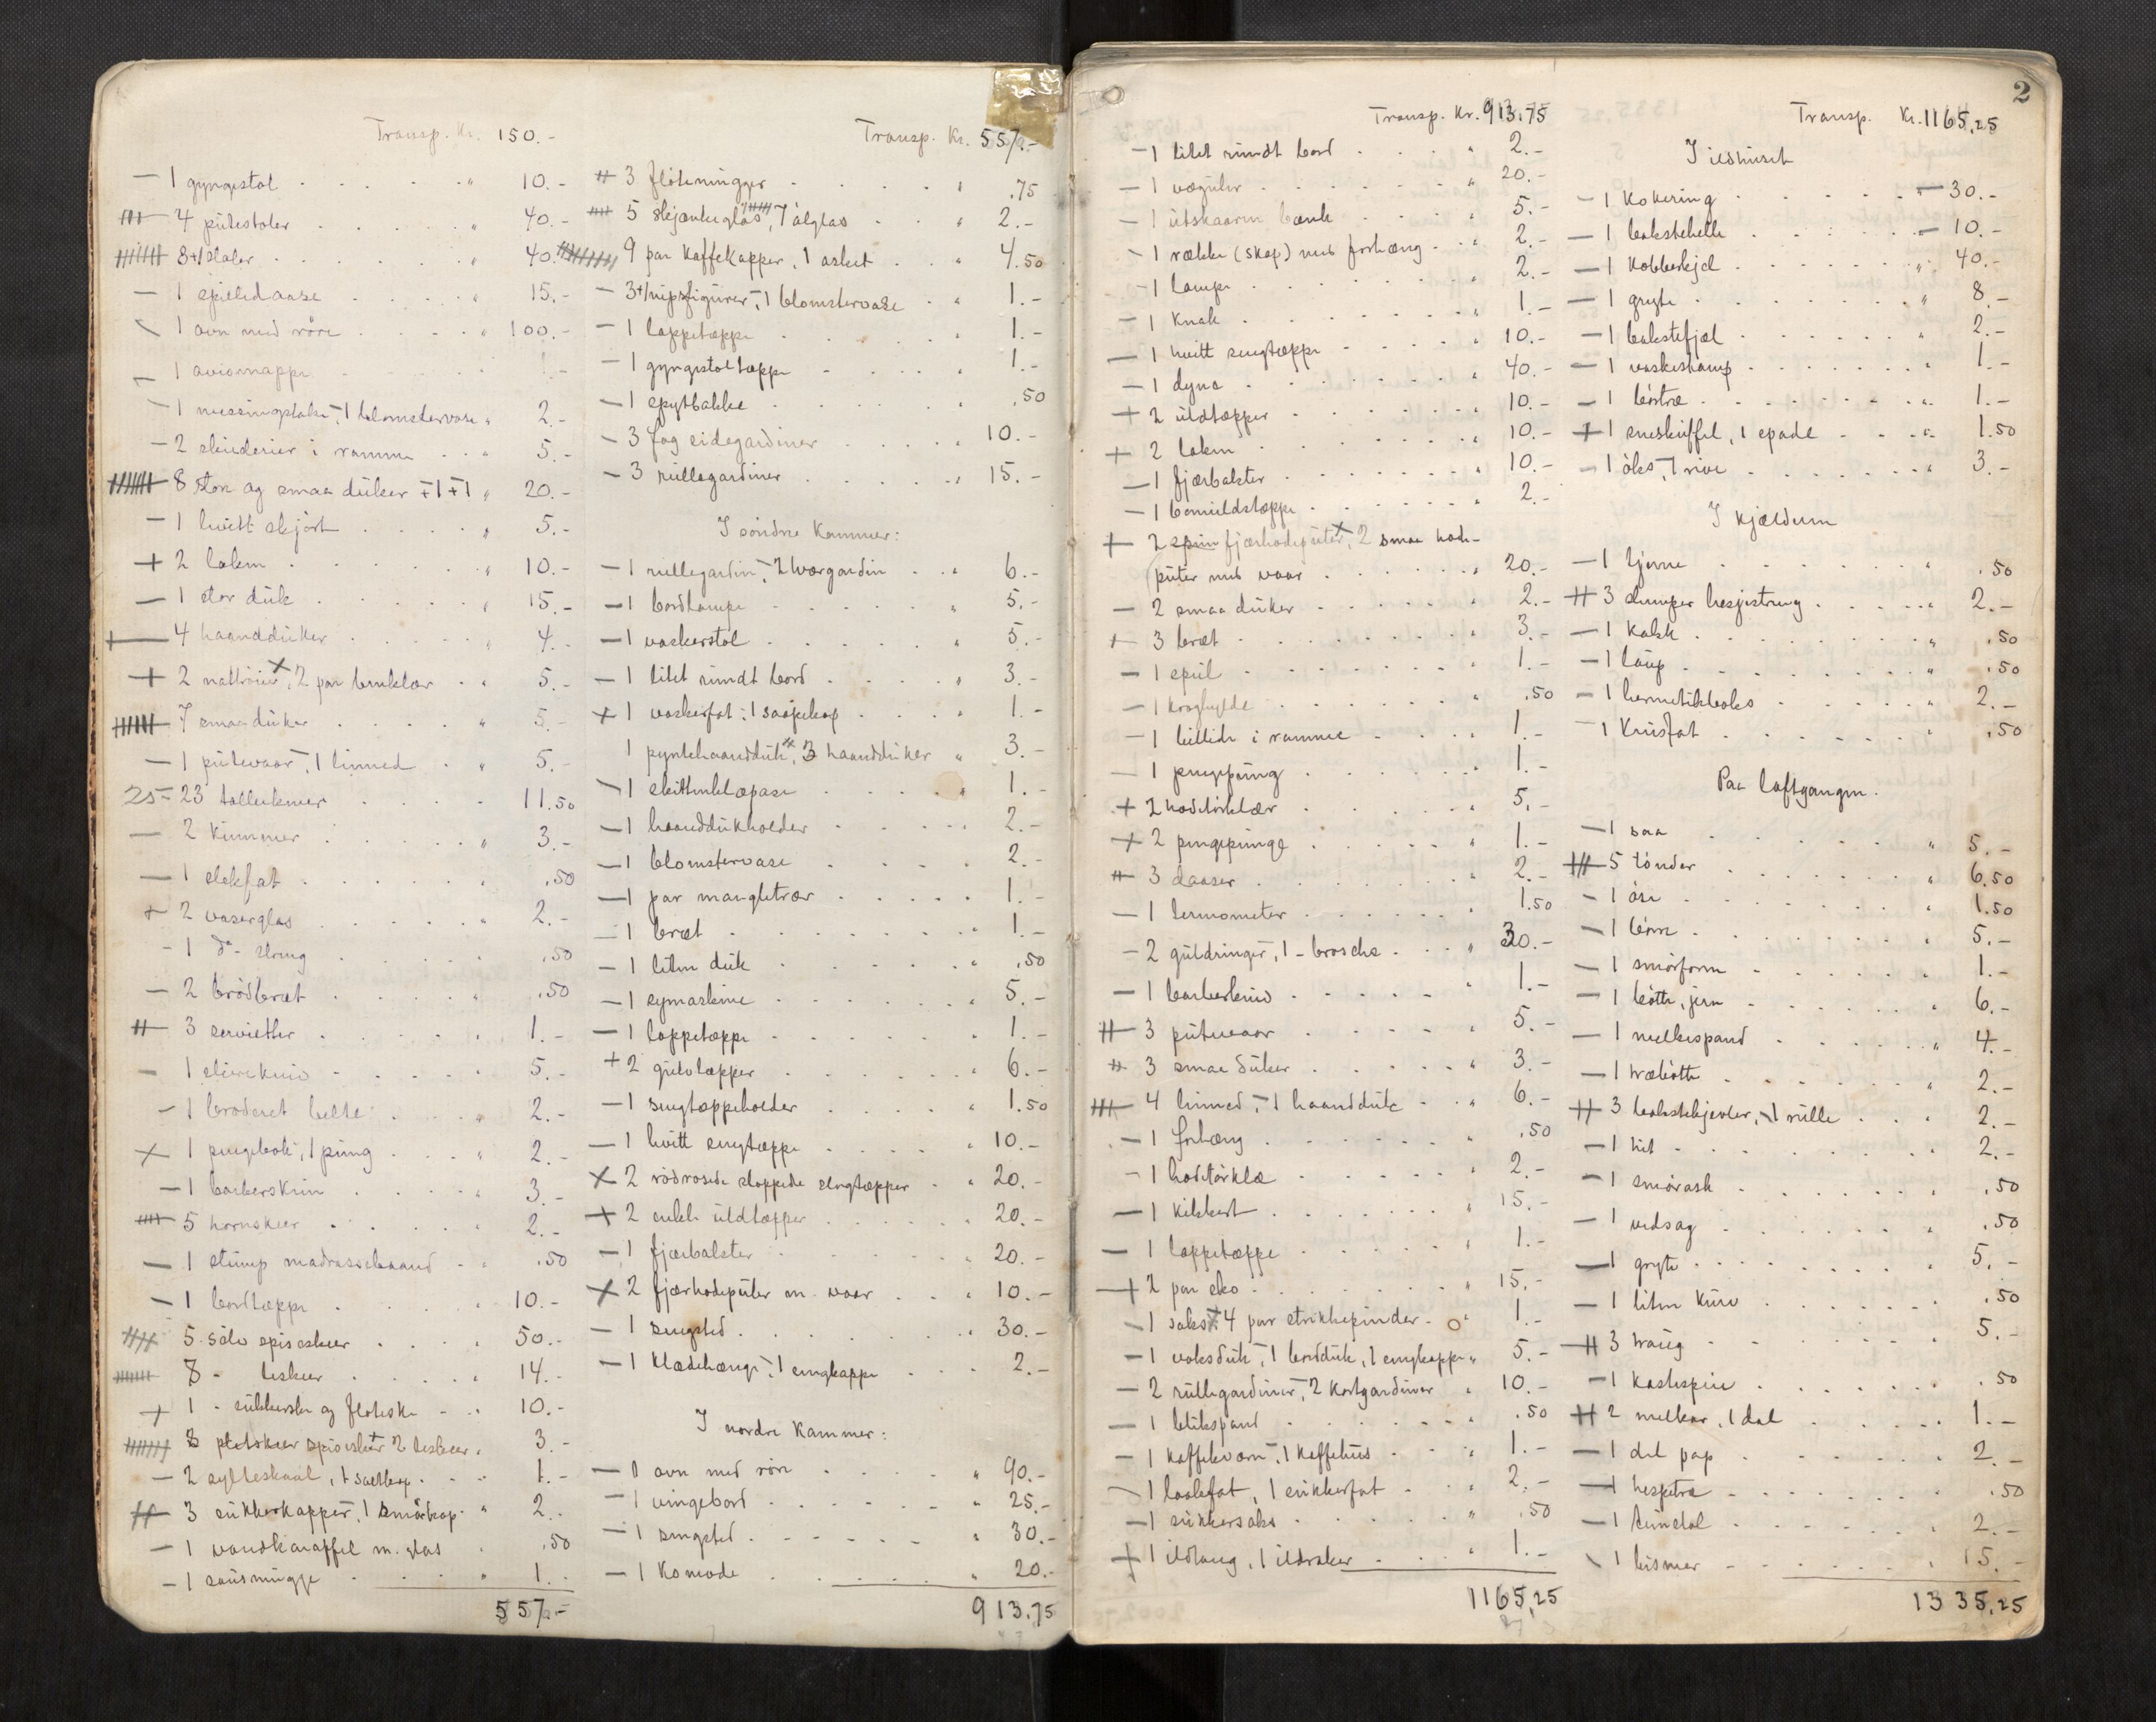 Transp. Kr. 150.-
1 gyngestol " 10.-
4 putestoler " 40.-
8+1 stoler " 40.-
1 spilledaase " 15.-
1 ovn med röre " 100.-
1 avismappe 1.-
1 messingstake, 1 blomstervase " 2.-
2 skinderier i ramme " 5.-
8 store og smaa duker +1+1 " 20.-
1 hvitt skjört " 5.-
2 laken " 10.-
1 stor duk " 15.-
4 haandduker " 4.-
2 nattröier, 2 par benklær " 5.-
7 smaa duker " 5.-
1 putevaar, 1 linned " 5.-
25 = 23 tallerkener 11.50
2 kummer " 3.-
1 stekfat " .50
2 vaserglas " 2.-
1 do .50
2 brödbræt " .50
3 servietter " 1.-
1 slirekniv " 5.-
1 broderet belte " 2.-
1 pengebok, 1 pung " 2.-
1 barberskrin " 3.-
5 hornskeer " 2.-
1 stump madrassebaand " .50
1 bordtæppe " 10.-
5 sölv spiseskeer " 50.-
8 - teskeer " 14.-
1 - sukkerske og flöteske " 10.-
8 pletskeer spiseskeer 2 teskeer " 3.-
2 sylteskaal, 1 saltkop " 1.-
3 sukkerkopper, 1 smörkop " 2.-
1 vandkaraffel m. glas " .50
1 sausmugge " 1.-
557.-
Transp. Kr. 557.-
3 flötemugger " .75
5 skjænkeglas, 7 ølglas " 2.-
9 par kaffekopper, 1 asket " 4.50
3+1 nipsfigurer, 1 blomstervase " 1.-
1 lappetæppe " 1.-
1 gyngestoltæppe " 1.-
1 spytbakke " .50
3 fag sidegardiner " 10.-
3 rullegardiner " 15.-
I söndre Kammer:
1 rullegardin, 2 tvergardin " 6.-
1 bordlampe " 5.-
1 vaskerstol " 5.-
1 litet rundt bord " 3.-
1 vaskerfat, 1 saapekop " 1.-
1 pyntehaandduk, 3 haandduker " 3.-
1 skittentøipose " 1.-
1 haanddukholder " 2.-
1 blomstervase " 2.-
1 par mangletrær " 1.-
1 bræt " 1.-
1 liten duk " .50
1 symaskine " 5.-
1 lappetæppe " 1.-
2 gulvtæpper " 6.-
1 sengtæppeholder " 1.50
1 hvitt sengtæppe " 10.-
2 rödrosede stoppede sengtæpper " 20.-
2 enkle uldtæpper " 20.-
1 fjærbolster " 20.-
2 fjærhodeputer m. vaar " 10.-
1 sengsted " 30.-
1 klædehænge, 1 sengkappe 2.-
I nordre Kammer:
1 ovn med rör " 90.-
1 vingebord " 25.-
1 sengsted " 30.-
1 Komode " 20.-
913.75
2
Transp. Kr. 913.75
1 litet rundt bord " 2.-
1 vægur " 20.-
1 utskaaren bænk " 5.-
1 række (skap) med forhæng " 2.-
1 lampe " 2.-
1 knak " 1.-
1 hvitt sengtæppe " 10.-
1 dyne " 40.-
2 uldtæpper " 10.-
2 laken " 10.-
1 fjærbolster " 10.-
1 bomuldstæppe " 2.-
2 fjærhodeputer, 2 smaa hode-
puter med vaar " 20.-
2 smaa duker " 2.-
3 bræt " 3.-
1 speil " 1.-
1 kroghylde " .50
1 billide i ramme " 1.-
1 pengepung " 1.-
2 hodetørklær " 5.-
2 pengepunge " 1.-
3 daaser " 2.-
1 termometer " 1.50
2 guldringer, 1 - brosche " 30.-
1 barberkniv " 1.-
3 putevaar " 5.-
3 smaa duker " 3.-
4 linned, 1 haandduk " 6.-
1 forhæng " .50
1 hodetörklæ " 2.-
1 kikkert " 15.-
1 lappetæppe " 1.-
2 par sko " 15.-
1 saks, 4 par strikkepinder 1.-
1 voksduk, 1 bordduk, 1 sengkappe " 5.-
2 rullegardiner, 2 kortgardiner " 10.-
1 blikspand " .50
1 kaffekværn, 1 kaffehus " 1.-
1 laakfat, 1 sukkerfat " 2.-
1 sukkersaks " .50
1 ildtang, 1 ildraker " 1.-
1165.25
Transp. Kr. 1165.25
I ildhuset
1 kokering 30.-
1 bakstehelle 10.-
1 kobberkjel " 40.-
1 gryte " 8.-
1 bakstefjøl " 2.-
1 vaskestamp " 1.-
1 börtre " 1.-
1 sneskuffel, 1 spade " 1.50
1 öks, 1 rive " 3.-
I Kjælderen
1 tjerne " .50
3 slumper hesjestreng " 2.-
1 kalk " .50
1 laup " .50
1 hermetikboks " 2.-
1 krusfat " .50
Paa loftgangen.
1 saa " 5.-
5 tönder " 6.50
1 öse " 1.50
1 börn " 5.-
1 smörform " 1.-
1 bötte, jern " 6.-
1 melkespand " 4.-
1 træbötte " 2.-
3 bakstekjevler, 1 rulle 2.-
1 hit 2.-
1 smörask .50
1 vedsag " .50
1 gryte " 5.-
1 liten kurv .50
3 traug 5.-
1 kastespire " .50
2 melkar, 1 dal 1.-
1 del pap 2.-
1 hespetre " .50
1 2.-
1 bismer " 15.-
1335.25